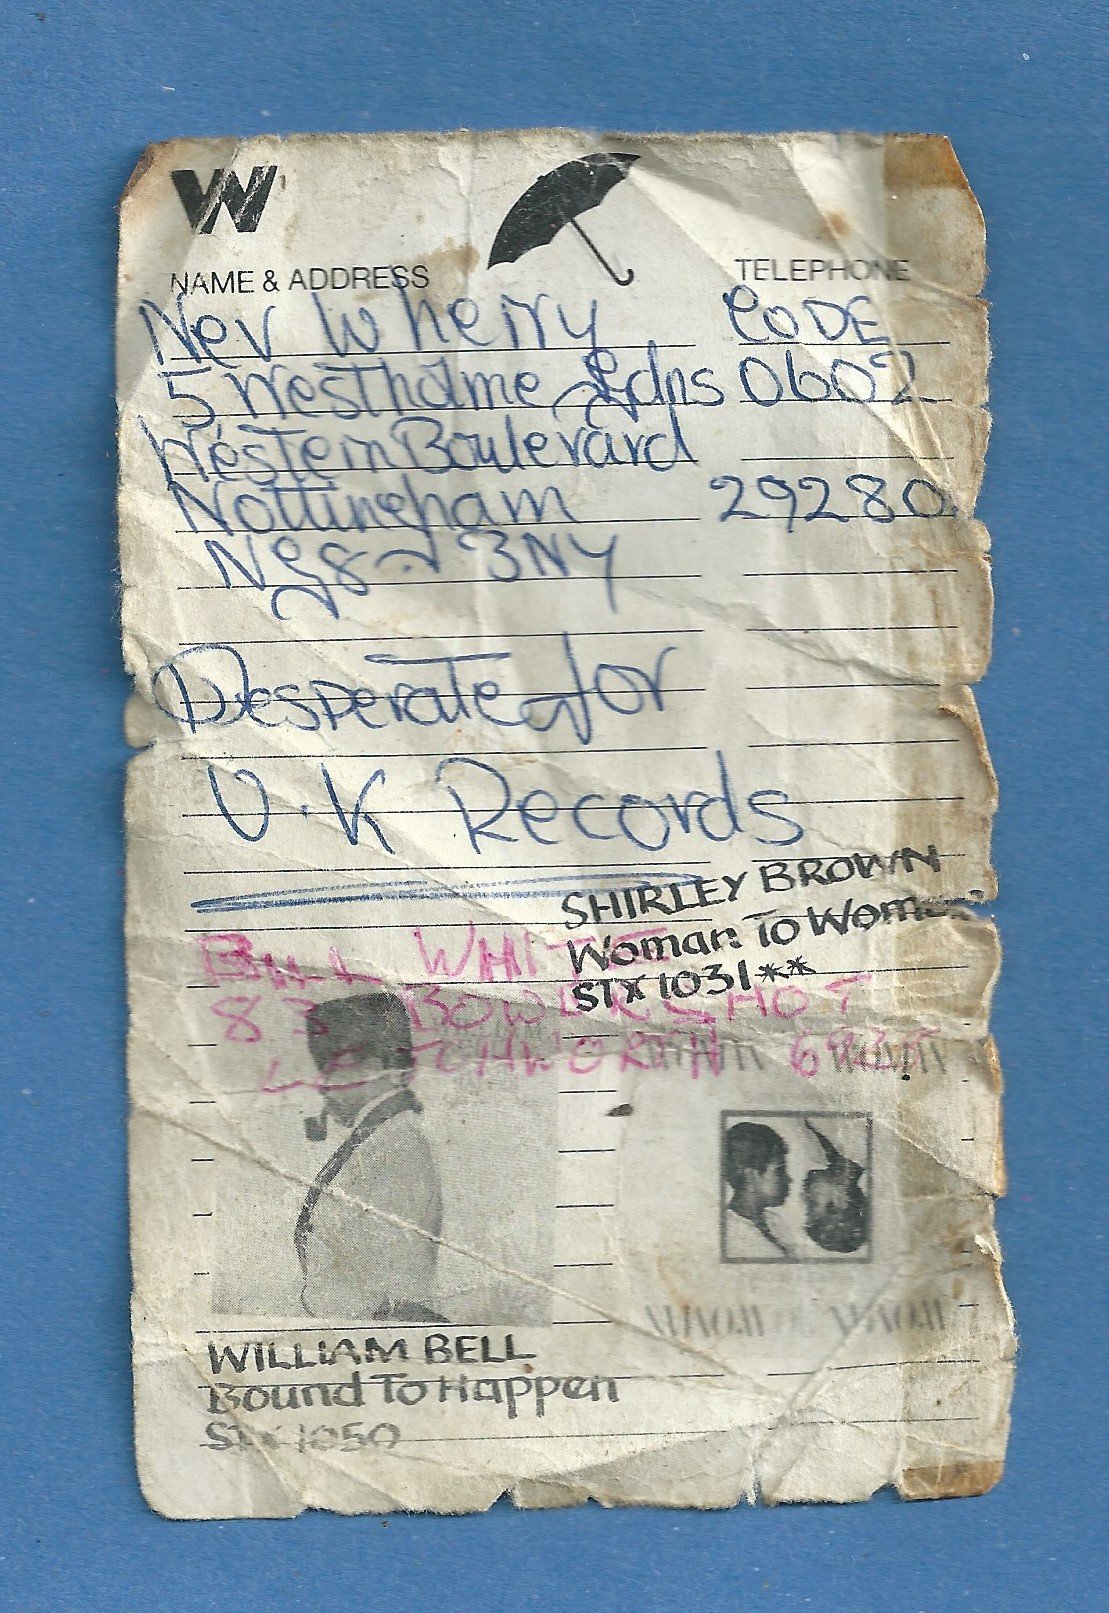 W
NAME & ADDRESS TELEPHONE
Nev Wherry CODE
5 Westholme Gdns 0602
Western Boulevard
Nottingham 29280
NG8 3NY
Desperate for
U.K Records
SHIRLEY BROWN
Woman To Woman
STX 1031**
BILL WHITE
83 BOWERSHOT
LETCHWORTH
WILLIAM BELL
Bound To Happen
STX 1050